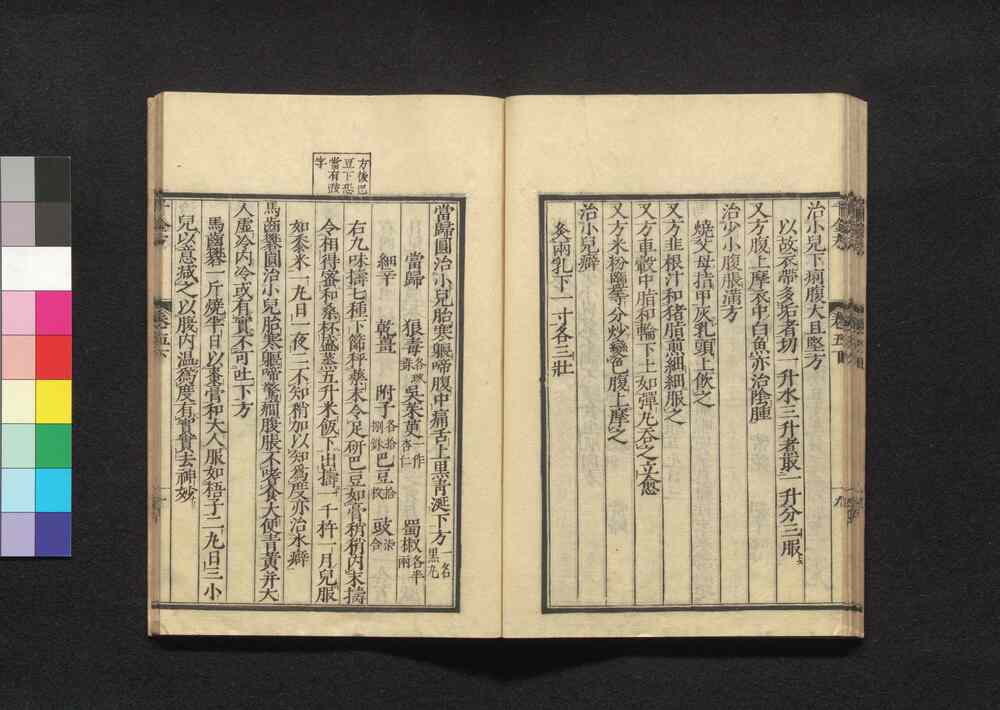 治小兒下痢腹大且堅方
以故衣帶多垢者切一升水三升煮取一升分三服
又方腹上摩衣中白魚亦治陰腫
治少小腹脹滿方
燒父母指甲灰乳頭上飲之
又方韭根汁和猪脂煎細細服之
又方車轂中脂和輪下土如彈丸吞之立愈
又方米粉鹽等分炒變色腹上摩之
治小兒癖
灸兩乳下一寸各三壯
方後巴
豆下恐
當有豉
字
當歸圓治小兒胎寒䠒啼腹中痛舌上黑青涎下方一名黑丸
當歸 狼毒各玖銖 吳茱萸一作杏仁 蜀椒各半兩
細辛 乾薑 附子各拾捌銖 巴豆拾枚 豉柒合
右九味擣七種下篩秤藥末令足研巴豆如膏稍稍內末擣
令相得蜜和桑杯盛蒸五升米飯下出擣一千杵一月兒服
如黍米一丸日一夜二不知稍加以知爲度亦治水癖
馬齒礬圓治小兒胎寒䠒啼驚癇腹脹不嗜食大便青黃并大
人虛冷內冷或有實不可吐下方
馬齒礬一斤燒半日以棗膏和大人服如梧子二丸日三小
兒以意減之以腹內温爲度有實實去神妙